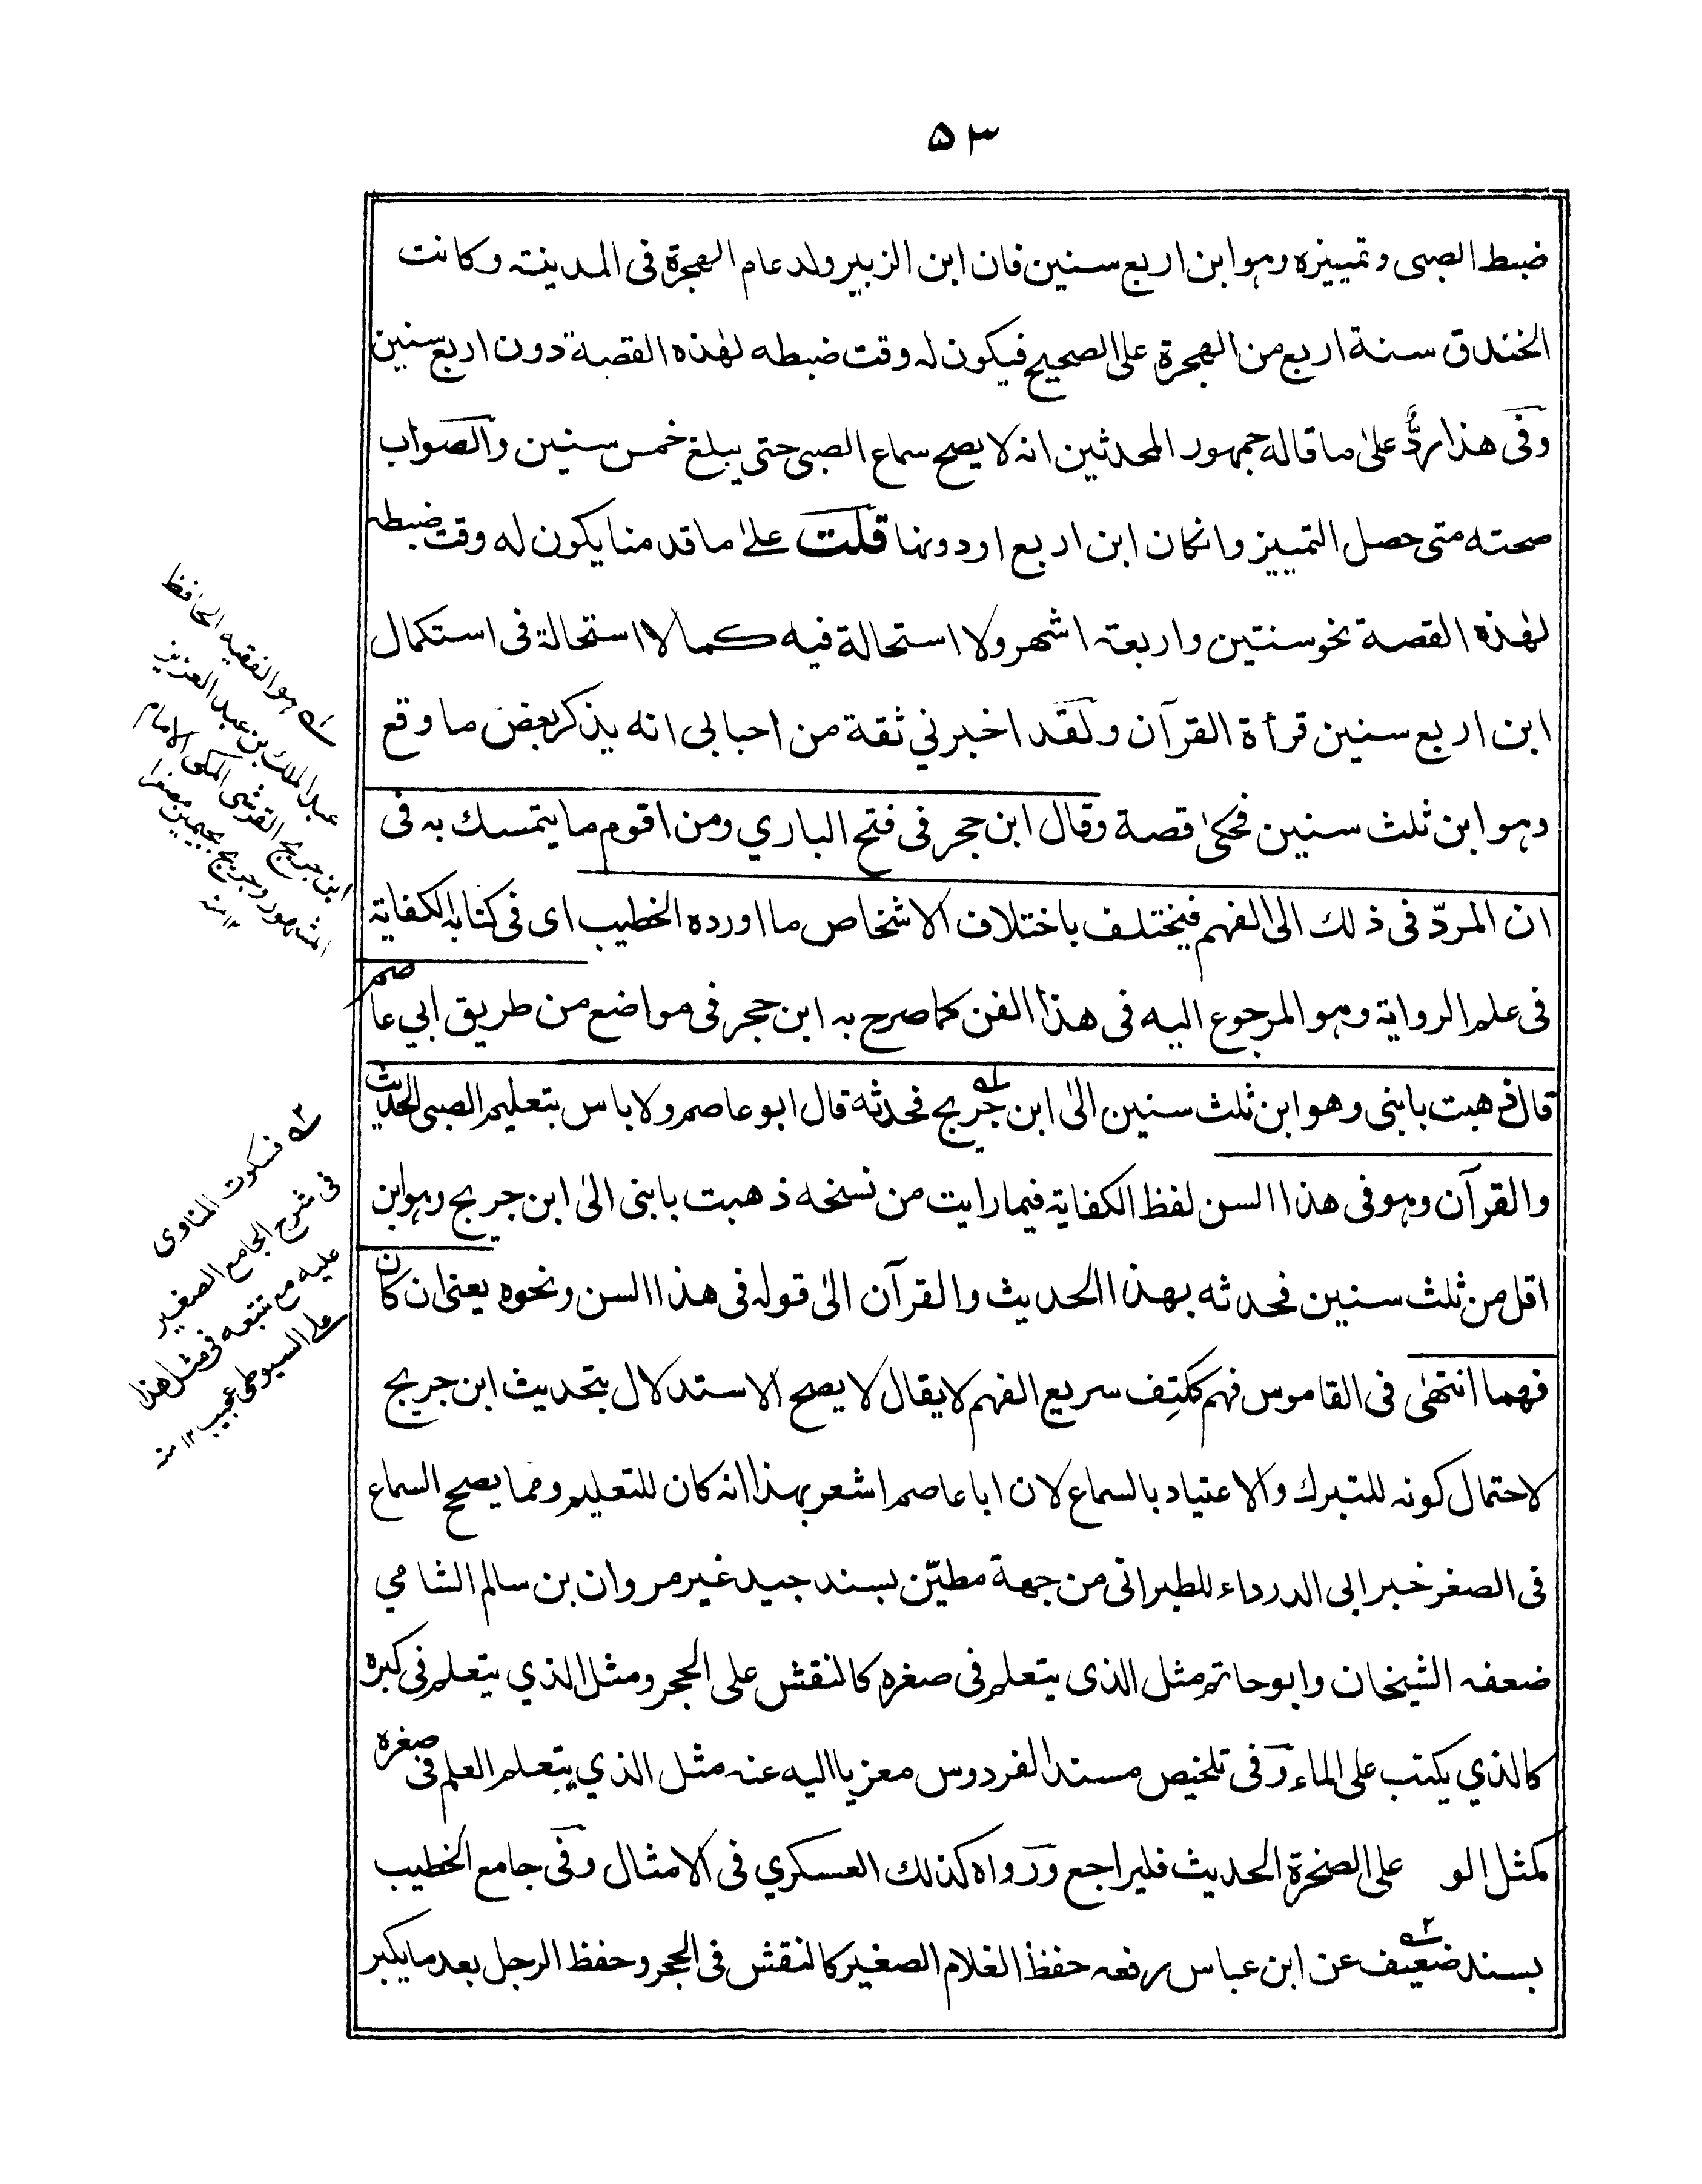 ۵۳
ضبط الصبى وتمييزه وہو ابن اربع سنين فان ابن الزبير ولد عام الهجرة فى المدينتہ وكانت
الخندق سنة اربع من الهجرة على الصحيح فيكون لہ وقت ضبطہ لهذه القصة دون اربع سنين
وفى هذا ردٌّ علىٰ ما قالہ جمهور المحدثين انہ لا يصح سماع الصبى حتى يبلغ خمس سنين والصواب
صحتہ متى حصل التمييز وانكان ابن اربع او دونہا قلت علىٰ ما قدمنا يكون له وقت ضبطہ
لهذه القصة نحو سنتين واربعتہ اشهر ولا استحالة فيه كما لا استحالة فى استكمال
ابن اربع سنين قرأة القرآن ولقد اخبرني ثقة من احبابى انه يذكر بعض ما وقع
وہو ابن ثلث سنين فحكىٰ قصة وقال ابن حجر فى فتح الباري ومن اقوم ما يتمسك بہ فى
ان المردّ فى ذلك الى الفهم فيختلف باختلاف الاشخاص ما اورده الخطيب اى فى كتابہ الكفاية
فى علم الرواية وہو المرجوع اليه فى هذا الفن كما صرح بہ ابن حجر فى مواضع من طريق ابي عاصم
قال ذهبت بابنى وهو ابن ثلث سنين الىٰ ابن جريج فحدثه قال ابو عاصم ولا باس بتعليم الصبى الحديث
والقرآن وہو فى هذا السن لفظ الكفاية فيما رايت من نسخه ذهبت بابنى الىٰ ابن جريج وہو ابن
اقل من ثلث سنين فحدثه بهذا الحديث والقرآن الىٰ قولہ فى هذا السن ونحوه يعنى ان كان
فهما انتهىٰ فى القاموس فهم ككتِف سريع الفهم لا يقال لا يصح الاستدلال بتحديث ابن جريج
لاحتمال كونہ للتبرك والاعتياد بالسماع لان ابا عاصم اشعر بهذا انہ كان للتعليم ومما يصحح السماع
فى الصغر خبر ابى الدرداء للطبرانى من جهة مطيّن بسند جيد غير مروان بن سالم الشامي
ضعفہ الشيخان وابو حاتم مثل الذى يتعلم فى صغره كالنقش على الحجر ومثل الذي يتعلم فى كبره
كالذي يكتب على الماء وفى تلخيص مسند الفردوس معزيا اليه عنہ مثل الذي يتعلم العلم فى صغره
كمثل الو على الصخرة الحديث فليراجع ورواه كذلك العسكري فى الامثال وفى جامع الخطيب
بسند ضعيف عن ابن عباس رفعہ حفظ الغلام الصغير كالنقش فى الحجر وحفظ الرجل بعد ما يكبر
لہ ہو الفقيه الحافظ
عبد الملك بن عبد العزيز
ابن جريج القرشى المكى الامام
المشهور وجريج بجيمين مصغرا
۱۲ منہ
۲ فسكوت المناوى
فى شرح الجامع الصغير
عليه مع تتبعه فى مثل هذا
على السيوطى عجيب ۱۲ منہ